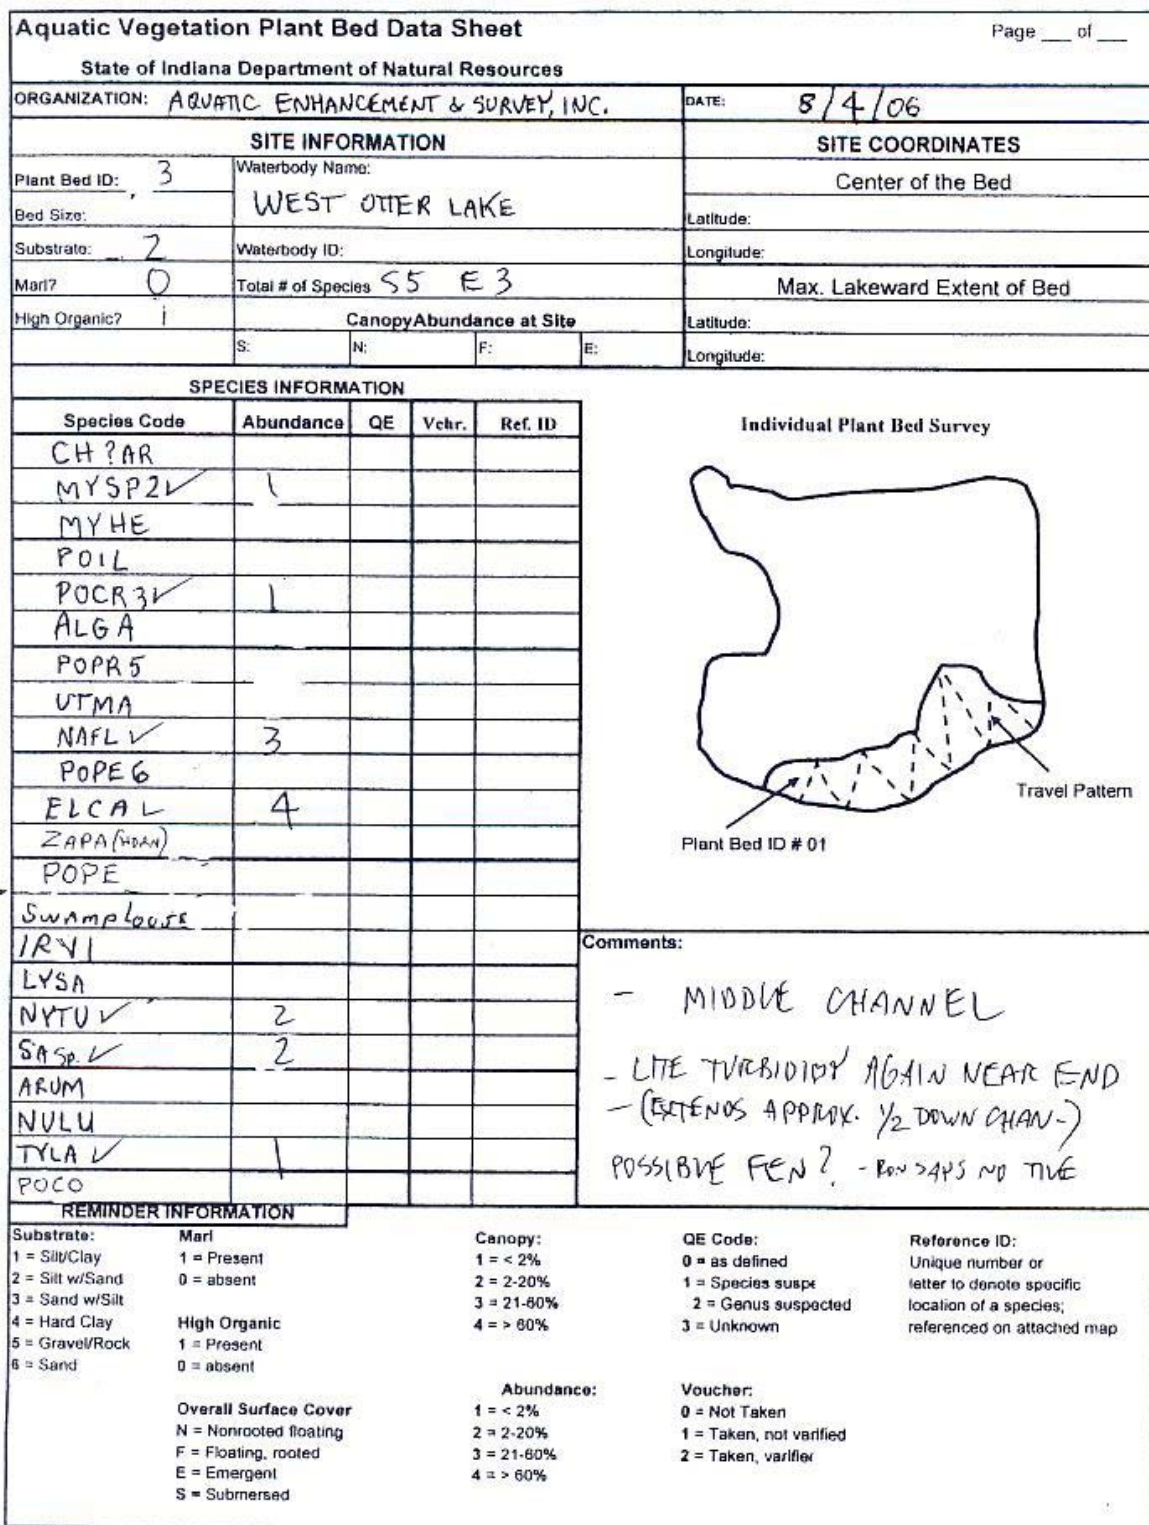 Aquatic Vegetation Plant Bed Data Sheet
Page ___ of ___
State of Indiana Department of Natural Resources
ORGANIZATION: AQUATIC ENHANCEMENT & SURVEY, INC.
DATE: 8/4/06
SITE INFORMATION
SITE COORDINATES
Plant Bed ID: 3
Waterbody Name:
WEST OTTER LAKE
Center of the Bed
Bed Size:
Latitude:
Substrate: 2
Waterbody ID:
Longitude:
Marl? 0
Total # of Species S5 E3
Max. Lakeward Extent of Bed
High Organic? 1
Canopy Abundance at Site
Latitude:
S: N: F: E:
Longitude:
SPECIES INFORMATION
Species Code Abundance QE Vchr. Ref. ID
Individual Plant Bed Survey
CH?AR
MYSP2✓ 1
MYHE
POIL
POCR3✓ 1
ALGA
POPR5
UTMA
NAFL✓ 3
POPE6
ELCA✓ 4
ZAPA (HORN)
POPE
Swamp Louse
IRVI
LYSA
NYTU✓ 2
SASp.✓ 2
ARUM
NULU
TYLA✓ 1
POCO
Travel Pattern
Plant Bed ID # 01
Comments:
- MIDDLE CHANNEL
- LITE TURBIDITY AGAIN NEAR END
- (EXTENDS APPROX. 1/2 DOWN CHAN-)
POSSIBLE FEN? - RON SAYS NO
REMINDER INFORMATION
Substrate:
1 = Silt/Clay
2 = Silt w/Sand
3 = Sand w/Silt
4 = Hard Clay
5 = Gravel/Rock
6 = Sand
Marl
1 = Present
0 = absent
High Organic
1 = Present
0 = absent
Overall Surface Cover
N = Nonrooted floating
F = Floating, rooted
E = Emergent
S = Submersed
Canopy:
1 = < 2%
2 = 2-20%
3 = 21-60%
4 = > 60%
Abundance:
1 = < 2%
2 = 2-20%
3 = 21-60%
4 = > 60%
QE Code:
0 = as defined
1 = Species suspe
2 = Genus suspected
3 = Unknown
Voucher:
0 = Not Taken
1 = Taken, not varified
2 = Taken, varifier
Reference ID:
Unique number or
letter to denote specific
location of a species;
referenced on attached map